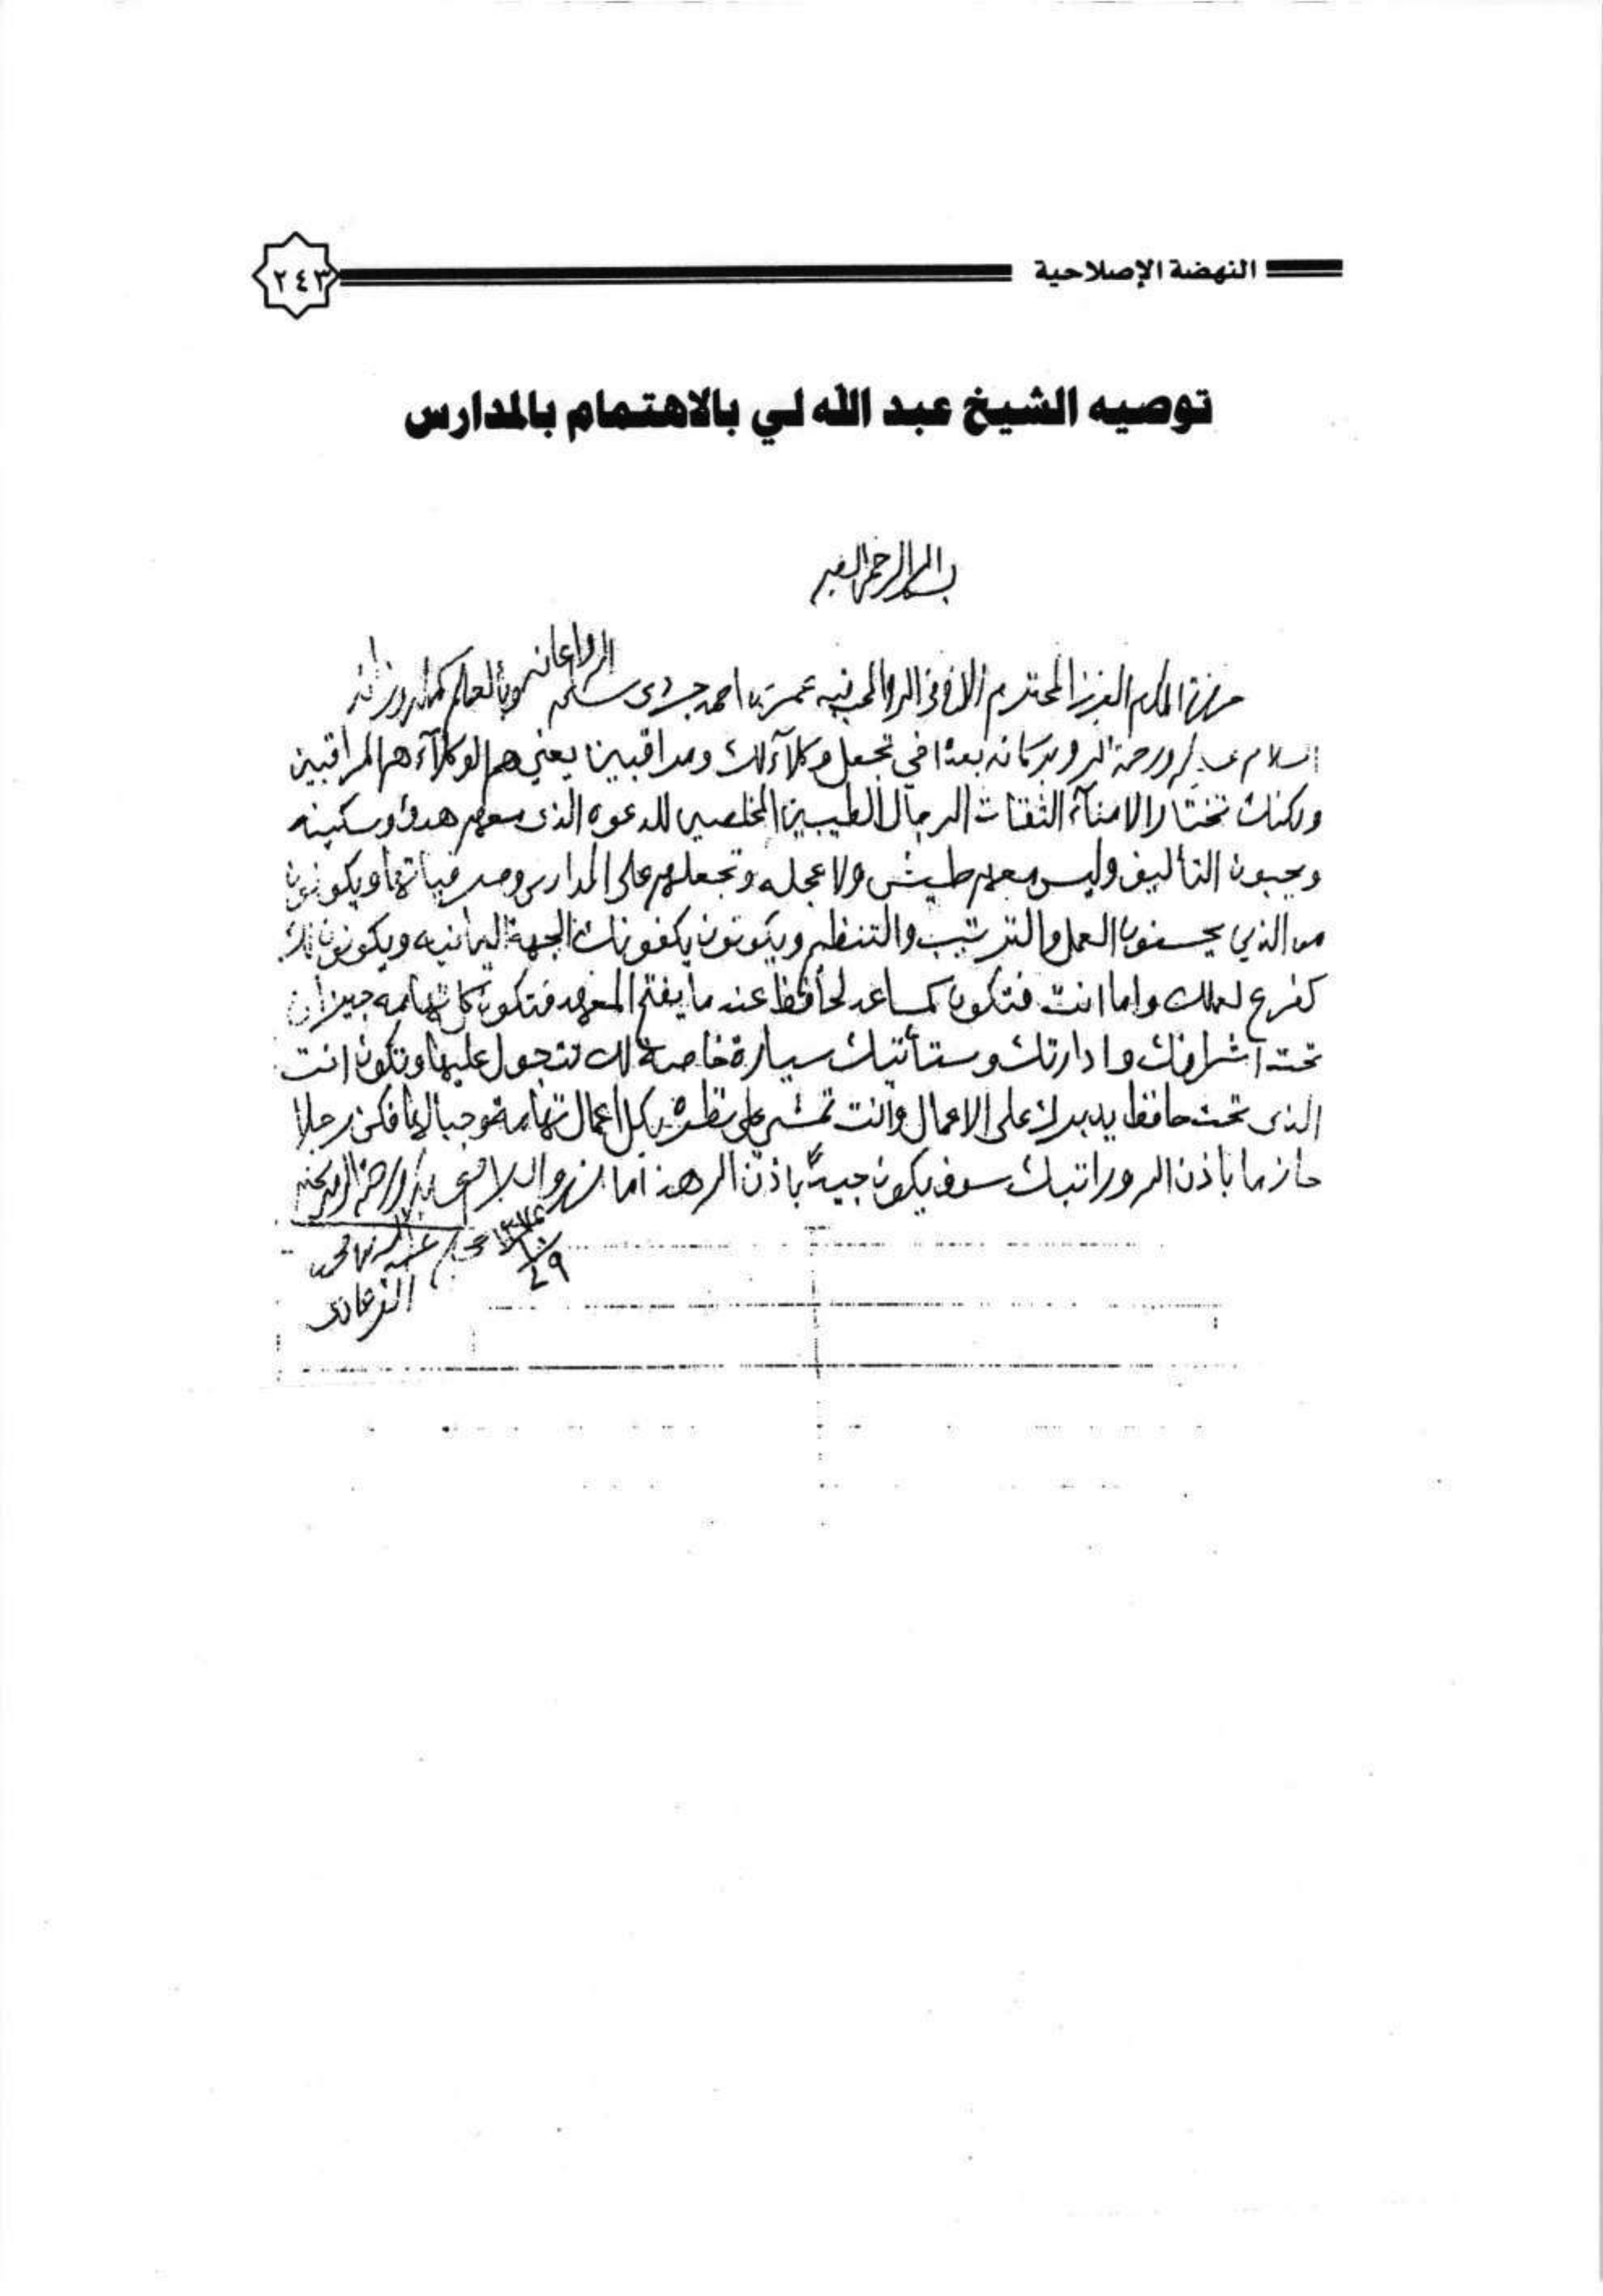 النهضة الإصلاحية
٢٤٣
توصيه الشيخ عبد الله لي بالاهتمام بالمدارس
بسم الله الرحمن الرحيم
حضرة المكرم العزيز المحترم الأخ في الله والمحب فيه عمر بن احمد جردى سلمه الله واعانه
السلام عليكم ورحمة الله وبركاته بعده اخي تجعل وكلآء لك ومراقبين يعني هم الوكلآء هم المراقبين
ولكنك تختار الامنآء الثقات الرجال الطيبين المخلصين للدعوه الذى معهم هدوء وسكينه
ويحبون التأليف وليس معهم طيش ولا عجله وتجعلهم على المدارس ومصرفياتها ويكونون
من الذين يحسنون العمل والترتيب والتنظيم ويكونون يكفونك الجهة اليمانيه ويكونون لك
كفرع لعملك واما انت فتكون كمساعد لحافظ عندما يفتح المعهد فتكون كل تهامه جيزان
تحت اشرافك وادارتك وستأتيك سيارة خاصة لك تتجول عليها وتكون انت
الذى تحت حافظ يدبرك على الاعمال وانت تمشي على نظره بكل اعمال تهامة وجبالها فكن رجلا
حازما باذن الله وراتبك سوف يكون جيد باذن الله هذا ما لزم والسلام عليكم ورحمة الله وبركاته
١٣٧٤ محبكم عبد الله بن محمد
٢٩
القرعاوى